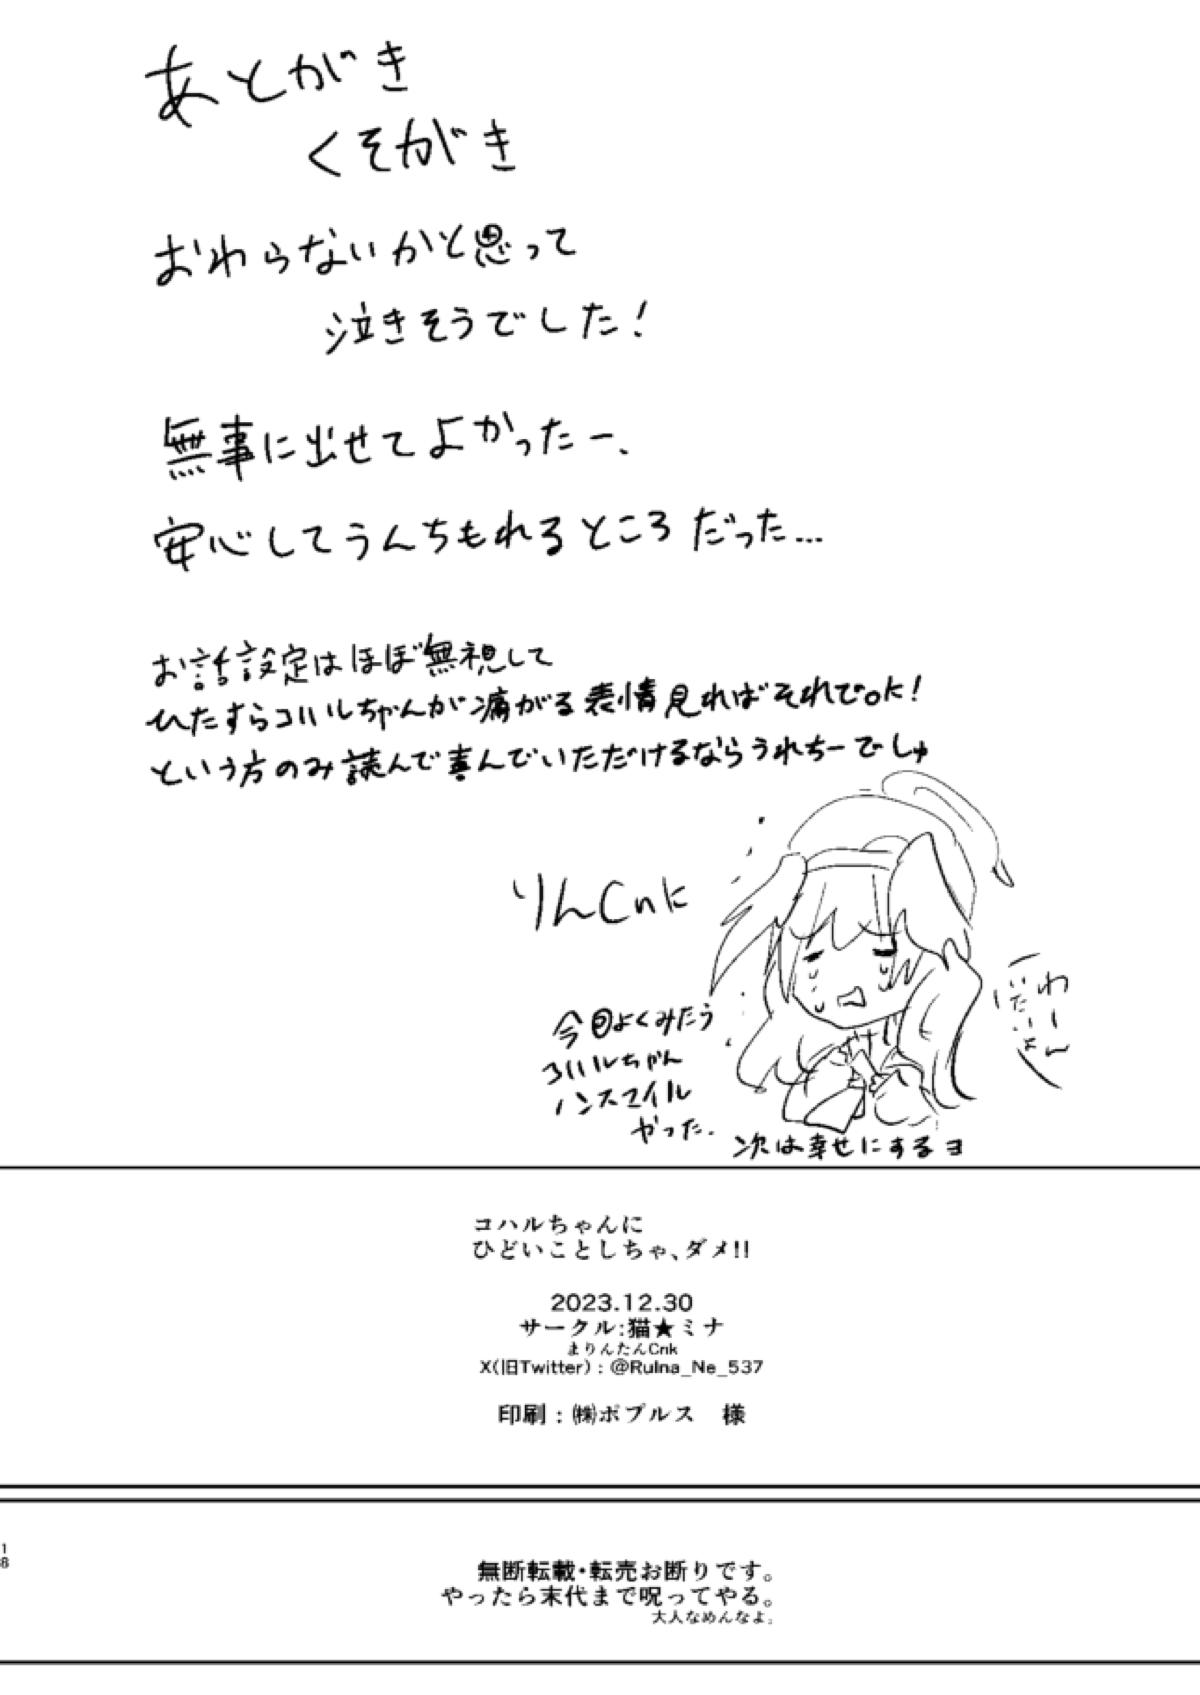 あとがき
くそがき
おわらないかと思って
泣きそうでした!
無事に出せてよかったー、
安心してうんちもれるところだった…
お話設定はほぼ無視して
ひたすらコハルちゃんが痛がる表情見ればそれでok!
という方のみ読んで喜んでいただけるならうれちーでしゅ
りんCnk
わーん
いたいよー
今回よくみたら
コハルちゃん
ノンスマイル
やった.
次は幸せにするヨ
コハルちゃんに
ひどいことしちゃ、ダメ!!
2023.12.30
サークル:猫★ミナ
まりんたんCnk
X(旧Twitter) : @RuIna_Ne_537
印刷 : ㈱ポプルス　様
18
無断転載・転売お断りです。
やったら末代まで呪ってやる。
大人なめんなよ。